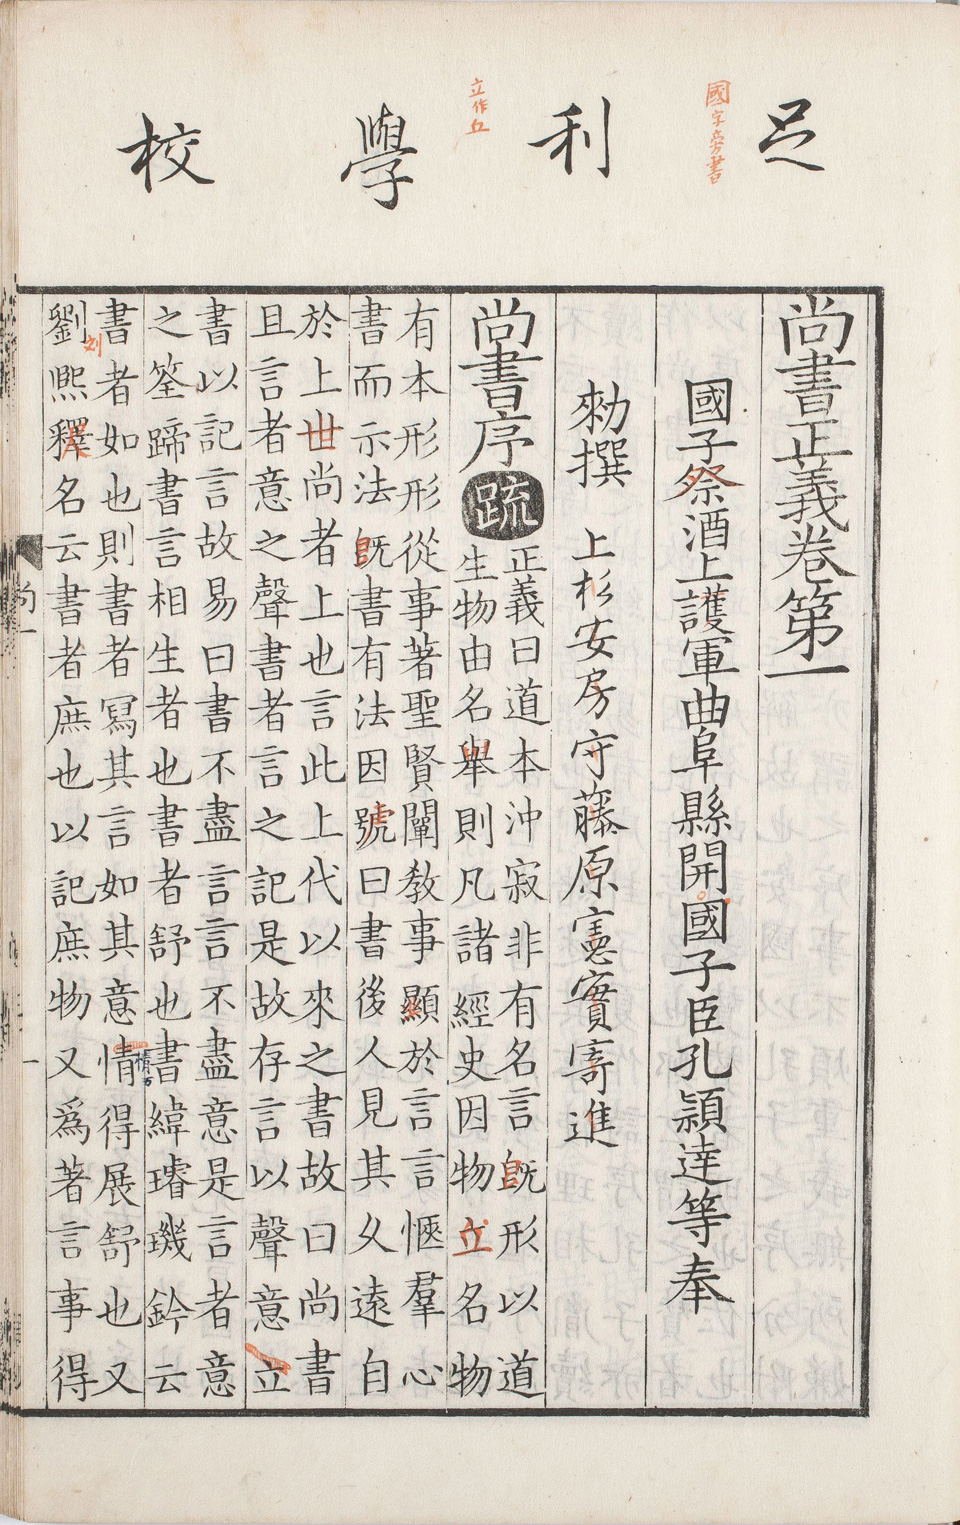 足利學校
國字旁書
立作丘
尚書正義卷第一
國子祭酒上護軍曲阜縣開國子臣孔穎達等奉
勑撰　上杉安房守藤原憲實寄進
尚書序疏
正義曰道本沖寂非有名言既形以道
生物由名舉則凡諸經史因物立名物
有本形形從事著聖賢闡教事顯於言言愜羣心
書而示法既書有法因號曰書後人見其久遠自
於上世尚者上也言此上代以來之書故曰尚書
且言者意之聲書者言之記是故存言以聲意立
書以記言故易曰書不盡言言不盡意是言者意
之筌蹄書言相生者也書者舒也書緯璿璣鈐云
書者如也則書者寫其言如其意情得展舒也又
劉熙釋名云書者庶也以記庶物又爲著言事得
刘
尚一
一